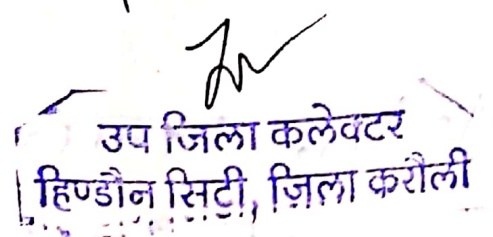 उप जिला कलेक्टर
हिण्डौन सिटी, ज़िला करौली